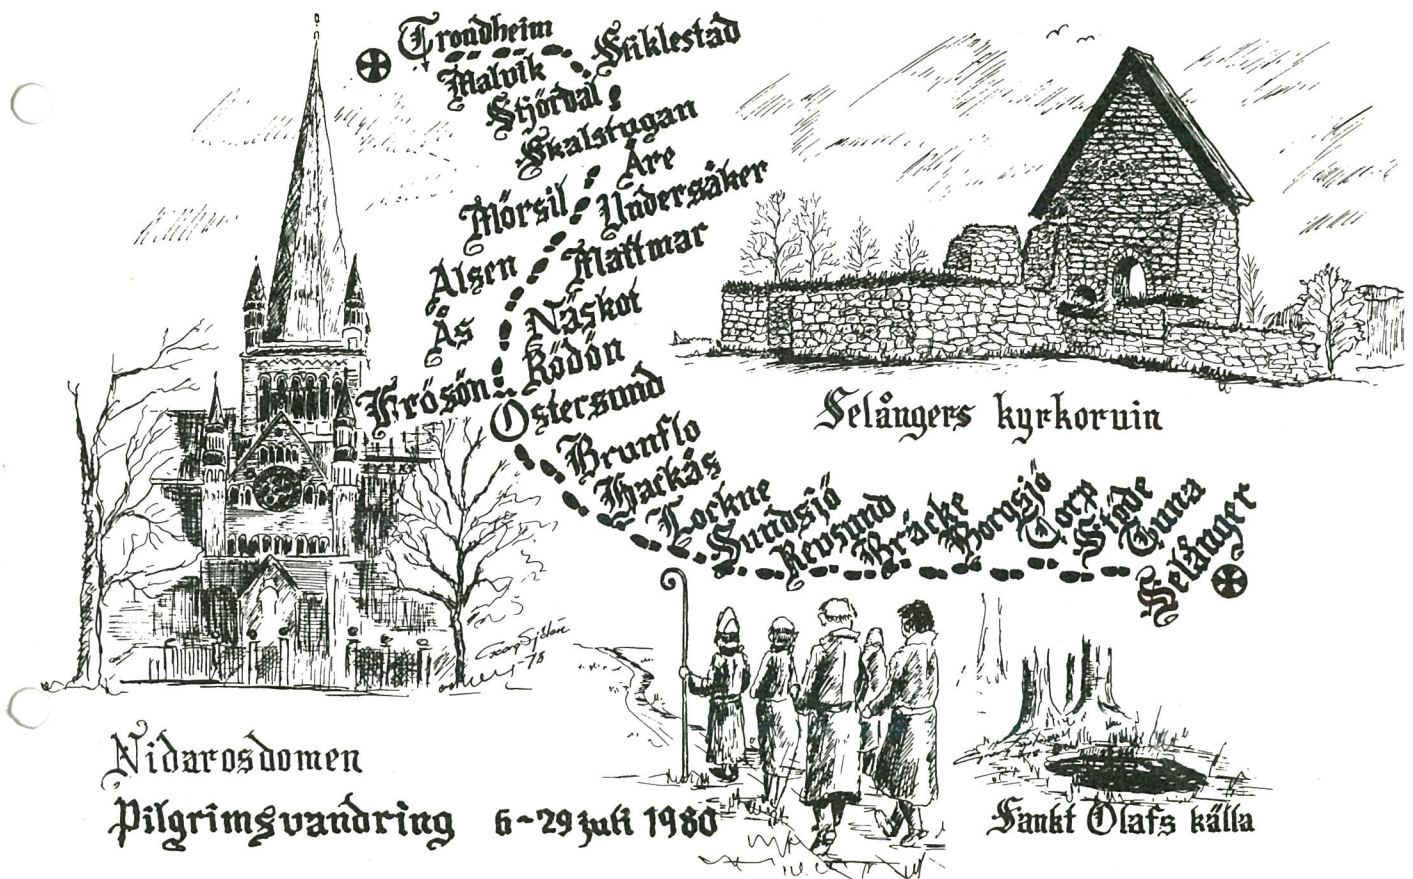 Trondheim
Stiklestad
Malvik
Stjördal
Skalstugan
Åre
Mörsil
Undersåker
Mattmar
Alsen
Ås
Näskot
Rödön
Frösön
Östersund
Brunflo
Hackås
Lockne
Sundsjö
Revsund
Bräcke
Borgsjö
Torp
Stöde
Tuna
Selånger
Selångers kyrkoruin
Georg Sjölén
-78
Nidarosdomen
Pilgrimsvandring 6-29 juli 1980
Sankt Olafs källa